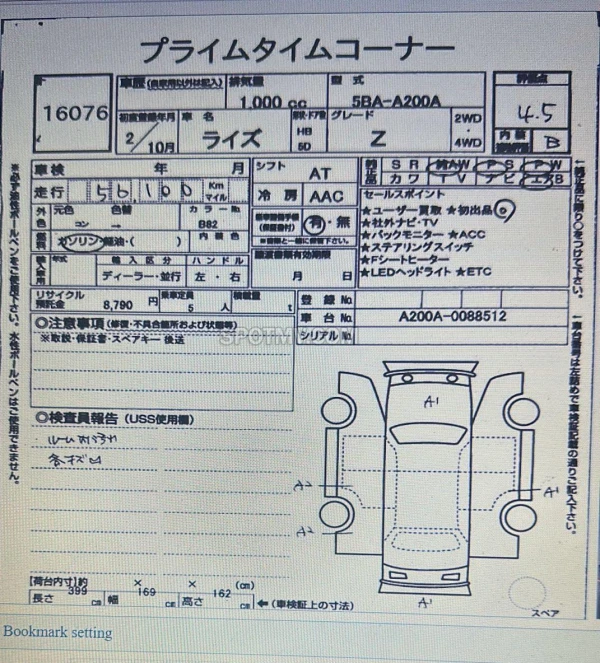 プライムタイムコーナー
16076
車歴 (自家用以外は記入)
排気量
1,000 cc
型 式
5BA-A200A
評価点
4.5
初度登録年月
2/10月
車 名
ライズ
形状・ドア数
HB
5D
グレード
Z
2WD
・
4WD
内 装
B
車検 年 月
走行 56,100 Km
マイル
シフト
AT
冷 房
AAC
純正品
SR AW PS PW
カワ TV ナビ エアB
セールスポイント
★ユーザー買取 ★初出品
★社外ナビ・TV
★バックモニター ★ACC
★ステアリングスイッチ
★Fシートヒーター
★LEDヘッドライト ★ETC
外装色
元色
色替
カラー No.
コン
→
B82
有・無
※書類と一緒に密封下さい。
燃料
ガソリン・軽油・( )
内 装 色
輸入車用
年式
輸 入 区 分
ハ ン ド ル
ディーラー・並行
左 ・ 右
譲渡書類有効期限
月 日
リサイクル
預託金
8,790 円
乗車定員
5 人
積載量
t
登 録 No.
車 台 No.
A200A-0088512
シリアル No.
◎注意事項 (修復・不具合箇所および状態等)
※取説・保証書・スペアキー 後送
◎検査員報告 (USS使用欄)
各キズ凹
A1
A2
A1
A2
A1
スペア
[荷台内寸] 約 × × (cm)
長さ 399 cm 幅 169 cm 高さ 162 cm ←(車検証上の寸法)
※必ず油性ボールペンをご使用下さい。水性ボールペンはご使用できません。
←純正品に限り○をつけて下さい。
←車台番号は左詰めで車検証記載の通りご記入下さい。
SPOTMY
Bookmark setting